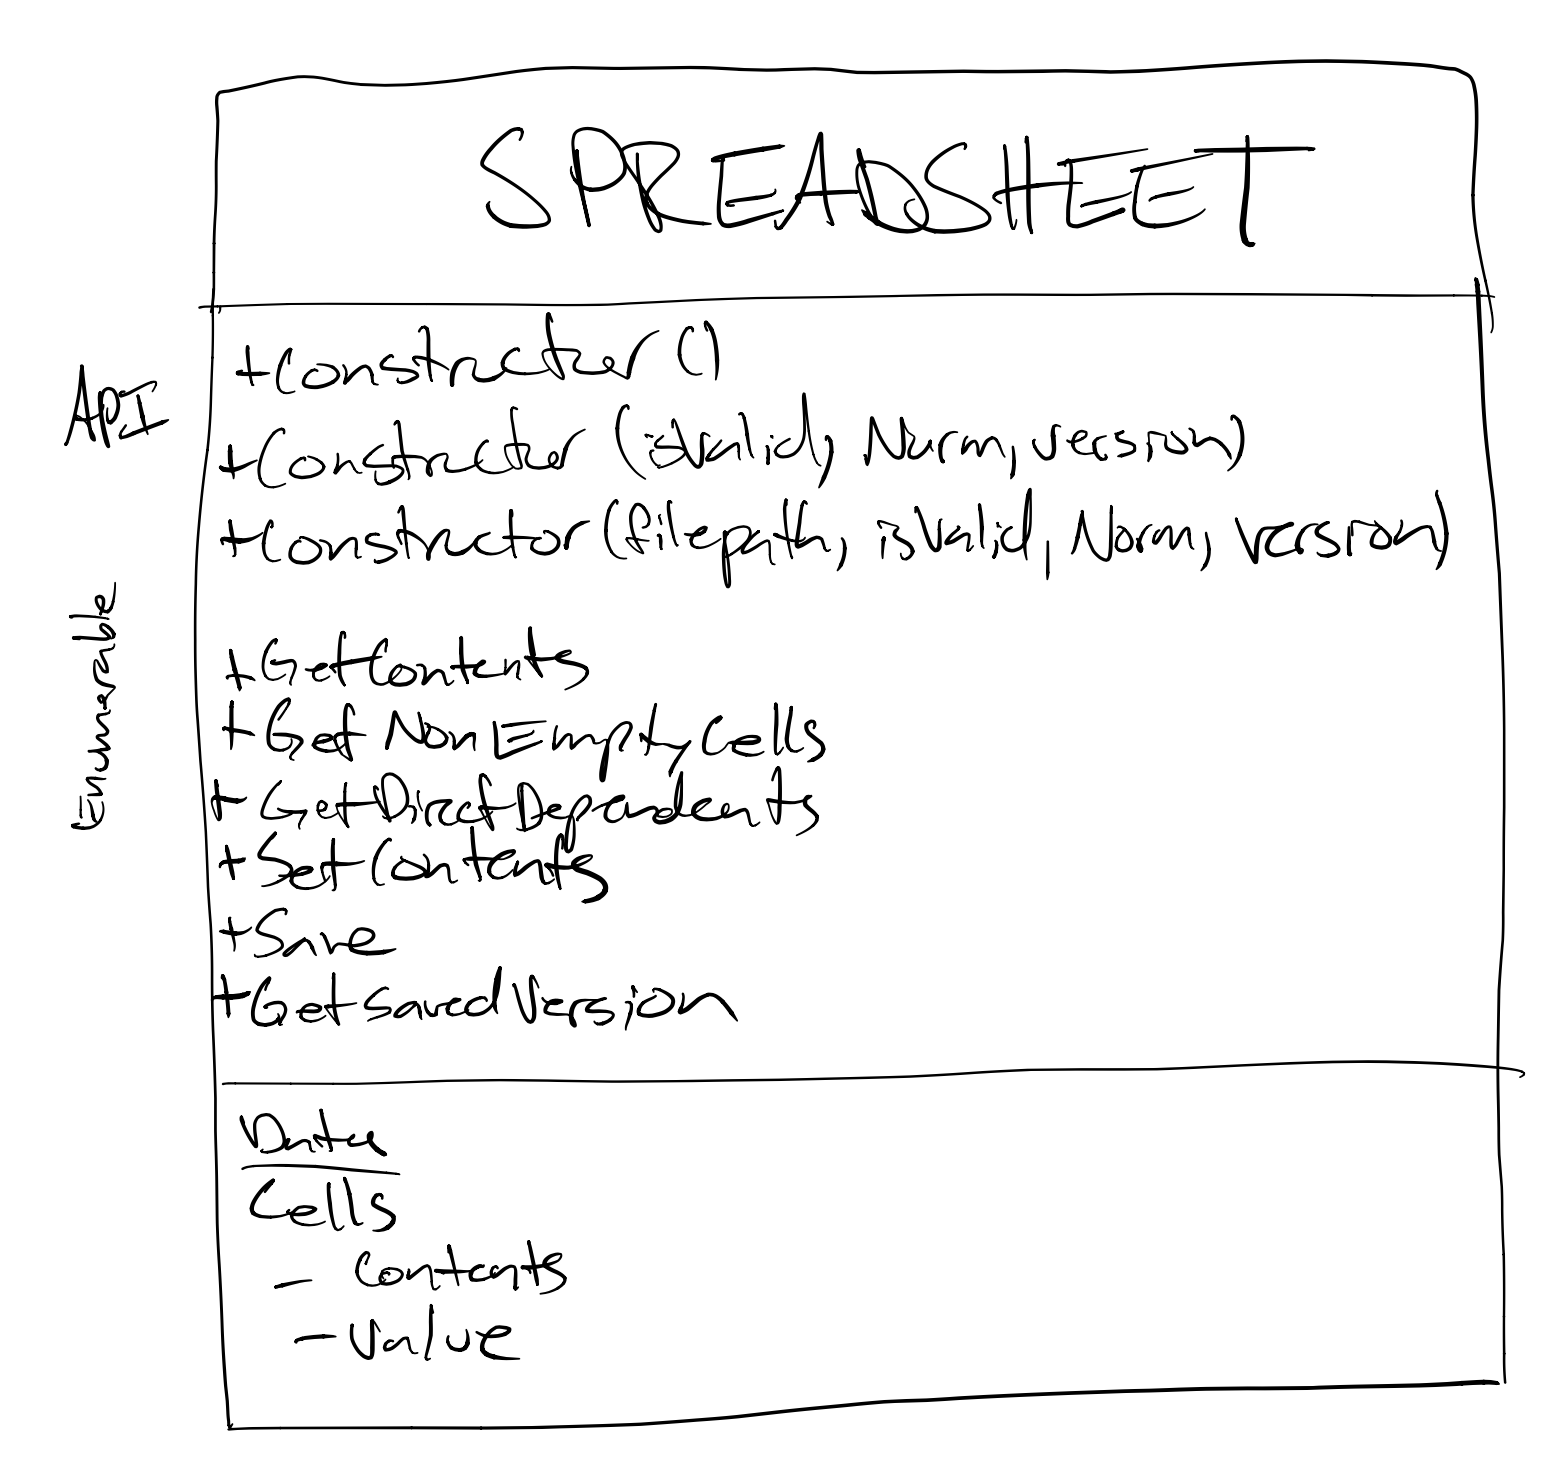 SPREADSHEET
API
+Constructor ()
+Constructor (isValid, Norm, version)
+Constructor (filepath, isValid, Norm, version)
Enumerable
+GetContents
+Get NonEmptyCells
+GetDirectDependents
+SetContents
+Save
+GetsavedVersion
Data
Cells
- Contents
- Value